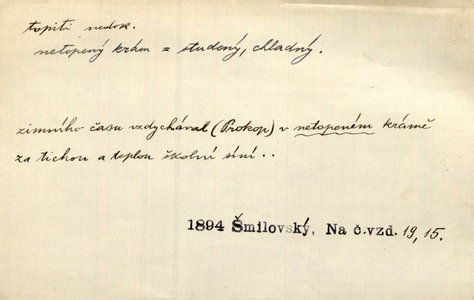 topiti nedok.
netopený krám = studený, chladný.
zimního času vzdychával (Prokop) v netopeném krámě
za tichou a teplou školní síní..
1894 Šmilovský, Na č.vzd. 19, 15.